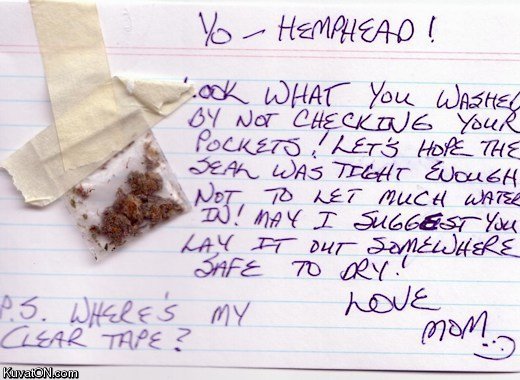 YO - HEMPHEAD!
LOOK WHAT YOU WASHED
BY NOT CHECKING YOUR
POCKETS! LET'S HOPE THE
SEAL WAS TIGHT ENOUGH
NOT TO LET MUCH WATER
IN! MAY I SUGGEST YOU
LAY IT OUT SOMEWHERE
SAFE TO DRY!
LOVE
MOM
P.S. WHERE'S MY
CLEAR TAPE?
KuvatON.com